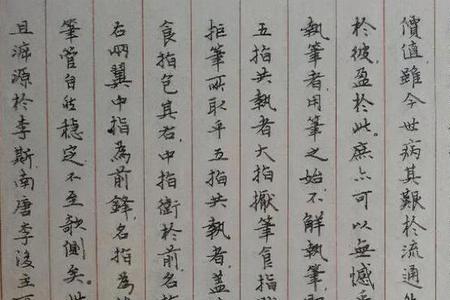 價值雖今世病其艱於流通
於彼,盈於此。庶亦可以無憾
執筆者,用筆之始,不解執筆,
五指共執者大指擫筆食指
拒筆所取乎五指共執者,蓋
食指包其右,中指衝於前,名
右兩翼中指為前鋒,名指為
筆管自然穩定不至欹側矣。世
且溯源於李斯,南唐李後主